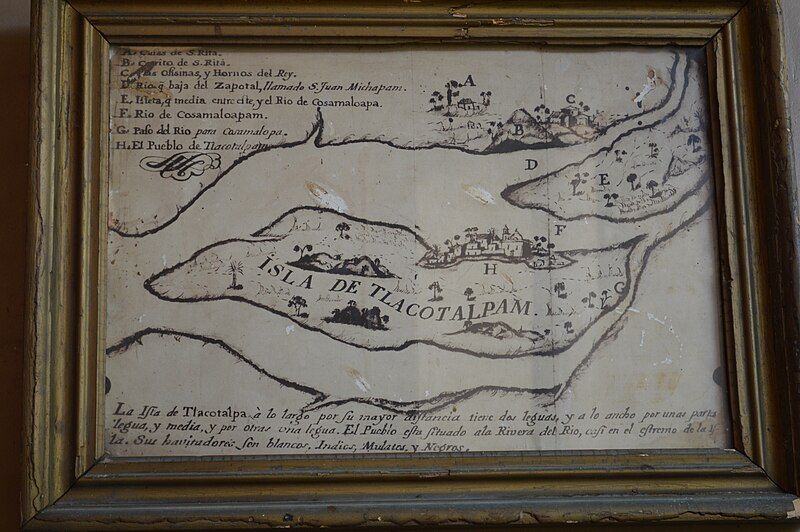 A. Casas de S. Rita.
B. Cerrito de S. Rita.
C. Las Ofisinas, y Hornos del Rey.
D. Rio, q̃ baja del Zapotal, llamado S. Juan Michapam.
E. Isleta, q̃ media entre este, y el Rio de Cosamaloapa.
F. Rio de Cosamaloapam.
G. Paso del Rio para Cosamalopa.
H. El Pueblo de Tlacotalpam
A
B
C
D
E
F
G
H
ISLA DE TLACOTALPAM.
La Isla de Tlacotalpa à lo largo por su mayor distancia tiene dos leguas, y a lo ancho por unas partes
legua, y media, y por otras una legua. El Pueblo esta situado ala Rivera del Rio, casi en el estremo de la Is
la. Sus havitadores son blancos, Indios, Mulatos, y Negros.